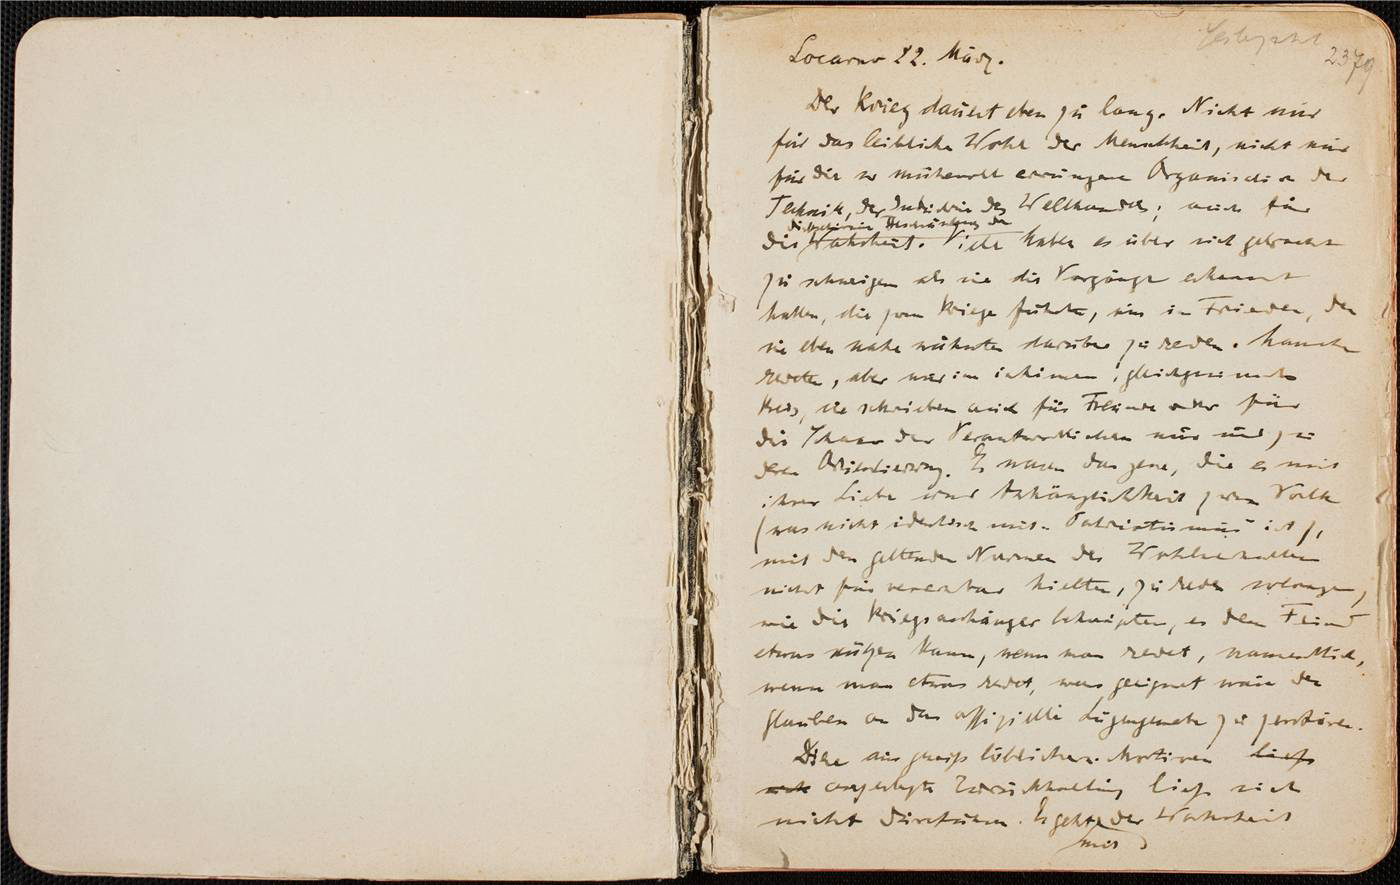 2379
Locarno 22. März.
Der Krieg dauert eben zu lang. Nicht nur
für das leibliche Wohl der Menschheit, nicht nur
für die so mühevoll errungene Organisation der
Technik, der Industrie des Welthandels; auch für
die Wahrheit. Viele haben es über sich gebracht
zu schweigen als sie die Vorgänge erkannt
hatten, die zum Kriege führten, um im Frieden, den
sie eben nahe wähnten darüber zu reden. Manche
redeten, aber nur im intimen, gleichgesinnten
Kreis, sie schrieben auch für Freunde oder für
die der Verantwortlichen nur und zu
deren Orientierung. Es waren das jene, die es mit
ihrer Liebe und Anhänglichkeit zum Volke
(was nicht identisch mit Patriotismus ist),
mit den geltenden Normen des Wohlverhaltens
nicht für vereinbar hielten, zu reden solange,
wie die Kriegsanhänger behaupten, es dem Feind
etwas nützen kann, wenn man redet, namentlich,
wenn man etwas redet, was geeignet wäre den
Glauben an das offizielle Lügengewebe zu zerstören.
Diese aus gewiß löblichen Motiven ließ
sich auferlegte Zurückhaltung ließ sich
nicht durchführen. Es geht der Wahrheit